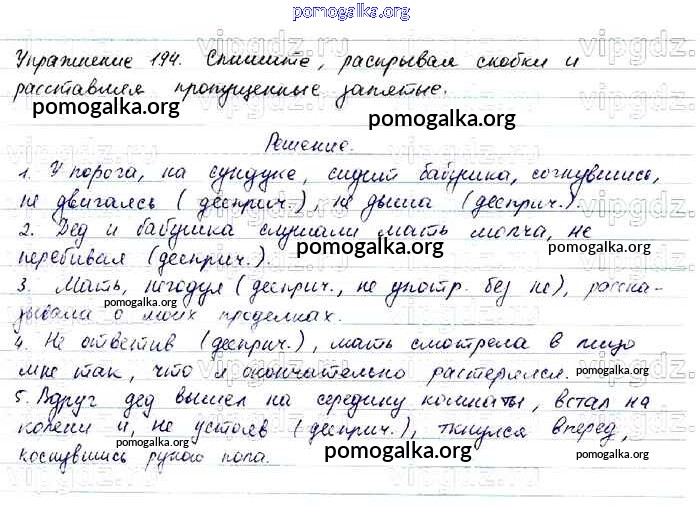 pomogalka.org
Упражнение 194. Спишите, раскрывая скобки и
расставляя пропущенные запятые.
pomogalka.org pomogalka.org
Решение.
1. У порога, на сундуке, сидит бабушка, согнувшись,
не двигаясь (дееприч.), не дыша (дееприч.).
pomogalka.org pomogalka.org
2. Дед и бабушка слушали мать молча, не
перебивая (дееприч.).
pomogalka.org pomogalka.org
3. Мать, негодуя (дееприч., не употр. без не), расска-
зывала о моих проделках.
pomogalka.org
4. Не ответив (дееприч.), мать смотрела в лицо
мне так, что я окончательно растерялся.
pomogalka.org pomogalka.org
5. Вдруг дед вышел на середину комнаты, встал на
колени и, не устояв (дееприч.), ткнулся вперёд,
коснувшись рукою пола.
pomogalka.org pomogalka.org